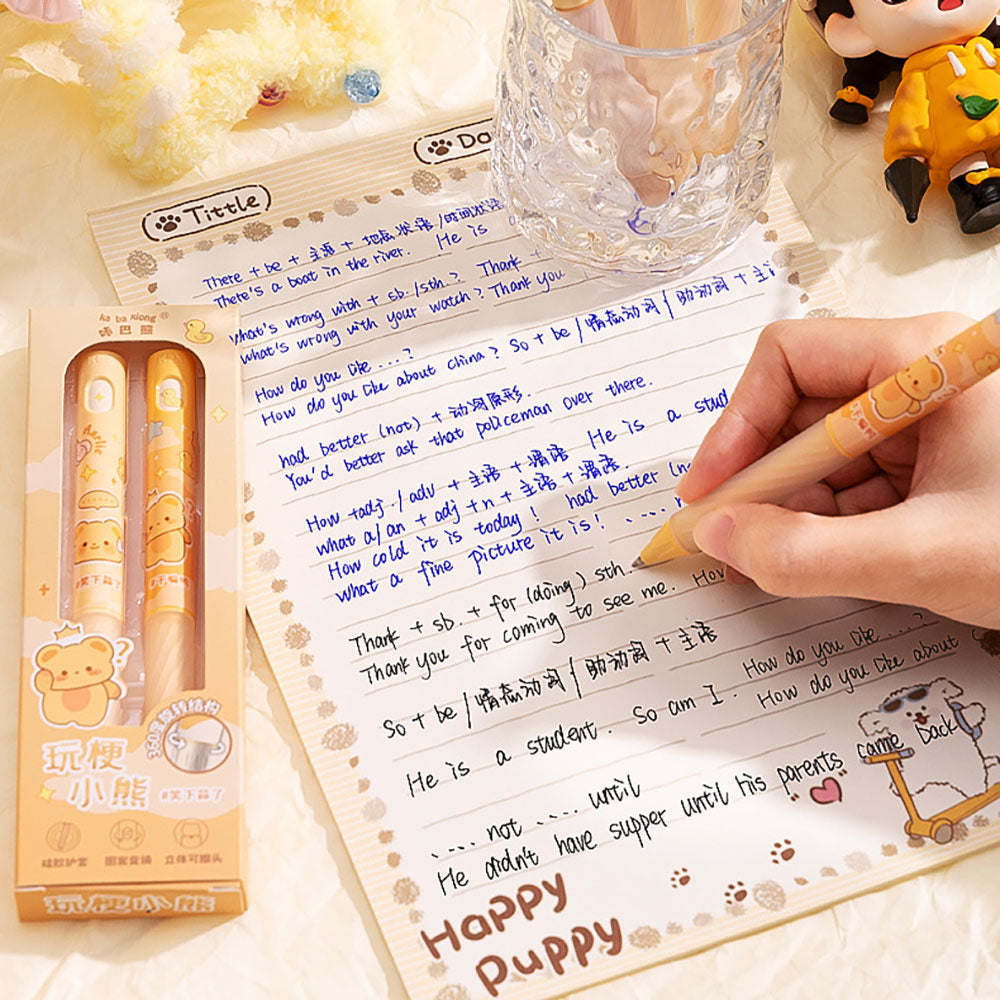 Tittle
Da
There + be + 主语 + 地点状语/时间状语
There's a boat in the river. He is a
What's wrong with + sb./sth.? Thank +
What's wrong with your watch? Thank you
How do you like ....?
How do you like about china? So + be / 情态动词 / 助动词 + 主语
had better (not) + 动词原形.
You'd better ask that policeman over there.
How +adj./adv + 主语 + 谓语 He is a stud
what a/an + adj + n + 主语 + 谓语.
How cold it is today! had better (no
what a fine picture it is! ....
Thank + sb. + for (doing) sth.
Thank you for coming to see me. How
So + be / 情态动词 / 助动词 + 主语
He is a student. So am I.
How do you like ....?
How do you like about
.... not .... until
He didn't have supper until his parents came back
Happy
Puppy
ka ba xiong®
咔巴熊
#笑下蒜了
360度旋转结构
玩梗
小熊
#笑下蒜了
硅胶护套
图案变换
立体可擦头
玩梗小熊